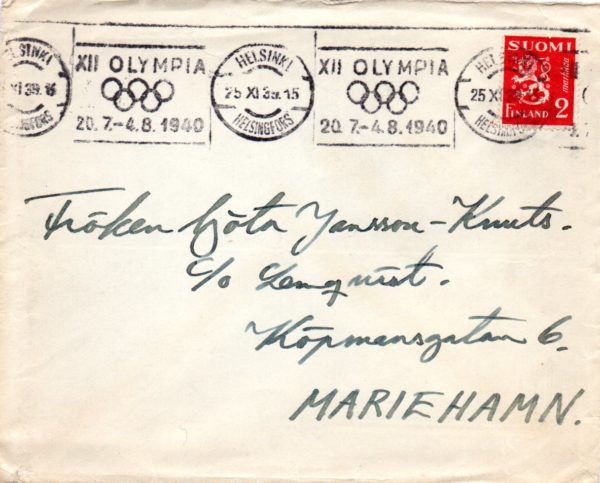 HELSINKI
XI 39
HELSINGFORS
XII OLYMPIA
20.7.–4.8.1940
HELSINKI
25 XI 39.15
HELSINGFORS
XII OLYMPIA
20.7.–4.8.1940
HELSINKI
25 XI
HELSINGFORS
SUOMI
markkaa
FINLAND 2
Fröken Göta Jansson-Knuts.
c/o Lemqvist.
Köpmansgatan 6.
MARIEHAMN.